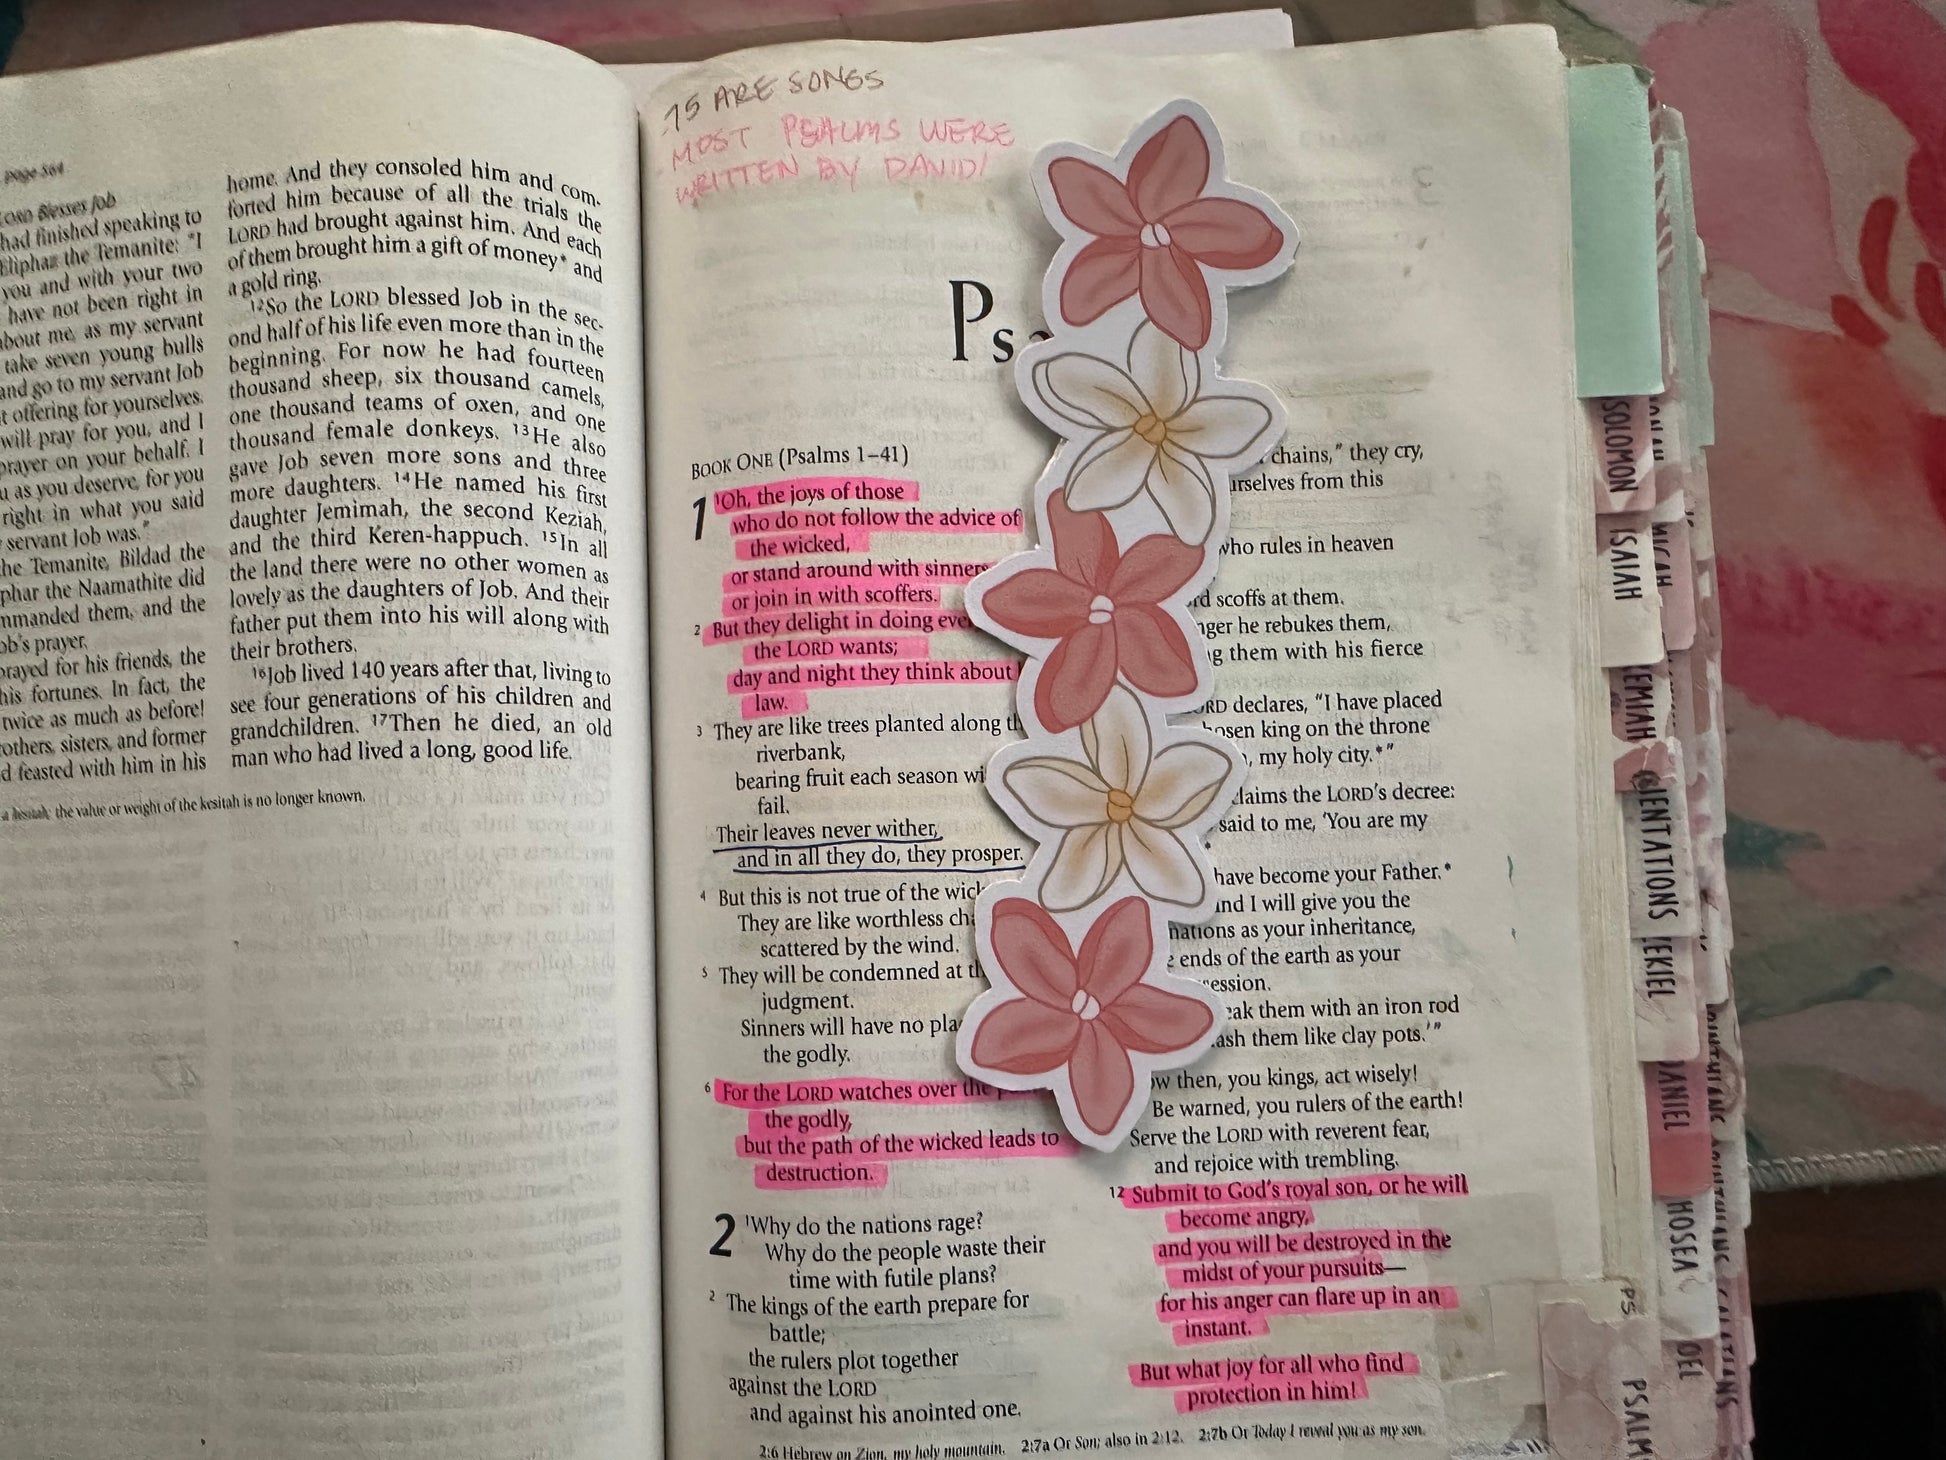 page 564
LORD Blesses Job
had finished speaking to
Eliphaz the Temanite: "I
you and with your two
have not been right in
about me, as my servant
take seven young bulls
and go to my servant Job
t offering for yourselves.
will pray for you, and I
prayer on your behalf. I
u as you deserve, for you
right in what you said
servant Job was."
the Temanite, Bildad the
phar the Naamathite did
mmanded them, and the
ob's prayer.
prayed for his friends, the
his fortunes. In fact, the
twice as much as before!
others, sisters, and former
d feasted with him in his
home. And they consoled him and com-
forted him because of all the trials the
LORD had brought against him. And each
of them brought him a gift of money* and
a gold ring.
12So the LORD blessed Job in the sec-
ond half of his life even more than in the
beginning. For now he had fourteen
thousand sheep, six thousand camels,
one thousand teams of oxen, and one
thousand female donkeys. 13He also
gave Job seven more sons and three
more daughters. 14He named his first
daughter Jemimah, the second Keziah,
and the third Keren-happuch. 15In all
the land there were no other women as
lovely as the daughters of Job. And their
father put them into his will along with
their brothers.
16Job lived 140 years after that, living to
see four generations of his children and
grandchildren. 17Then he died, an old
man who had lived a long, good life.
a kesitah; the value or weight of the kesitah is no longer known.
75 ARE SONGS
MOST PSALMS WERE
WRITTEN BY DAVID!
Ps
BOOK ONE (Psalms 1–41)
1 1Oh, the joys of those
who do not follow the advice of
the wicked,
or stand around with sinners
or join in with scoffers.
2 But they delight in doing eve
the LORD wants;
day and night they think about
law.
3 They are like trees planted along th
riverbank,
bearing fruit each season wi
fail.
Their leaves never wither,
and in all they do, they prosper.
4 But this is not true of the wick
They are like worthless cha
scattered by the wind.
5 They will be condemned at th
judgment.
Sinners will have no pla
the godly.
6 For the LORD watches over the
the godly,
but the path of the wicked leads to
destruction.
2 1Why do the nations rage?
Why do the people waste their
time with futile plans?
2 The kings of the earth prepare for
battle;
the rulers plot together
against the LORD
and against his anointed one.
chains," they cry,
urselves from this
who rules in heaven
rd scoffs at them.
nger he rebukes them,
g them with his fierce
ORD declares, "I have placed
hosen king on the throne
, my holy city.*"
claims the LORD's decree:
said to me, 'You are my
*
have become your Father.*
and I will give you the
nations as your inheritance,
e ends of the earth as your
session.
eak them with an iron rod
ash them like clay pots.'"
ow then, you kings, act wisely!
Be warned, you rulers of the earth!
Serve the LORD with reverent fear,
and rejoice with trembling.
12 Submit to God's royal son, or he will
become angry,
and you will be destroyed in the
midst of your pursuits—
for his anger can flare up in an
instant.
But what joy for all who find
protection in him!
2:6 Hebrew on Zion, my holy mountain. 2:7a Or Son; also in 2:12. 2:7b Or Today I reveal you as my son.
SOLOMON
ISAIAH
MICAH
EMIAH
@JENTATIONS
EKIEL
DANIEL
HOSEA
OEL
PS
PSALM